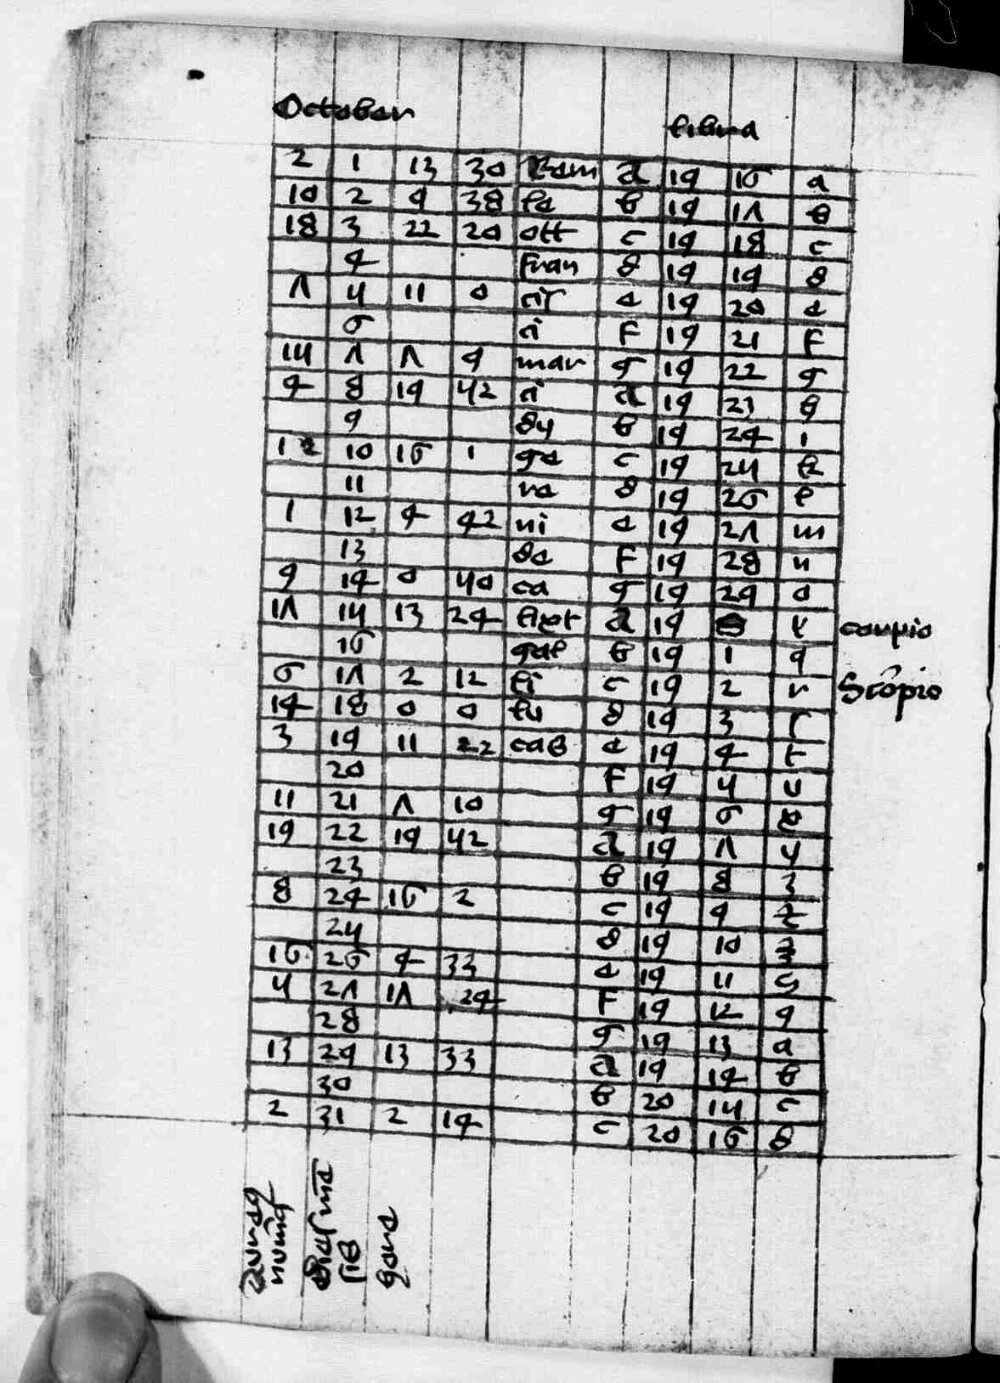 October
libra
2 1 13 30 Rem a 19 16 a
10 2 9 38 le b 19 17 b
18 3 22 20 ott c 19 18 c
4 Fran d 19 19 d
7 5 11 0 cis e 19 20 e
6 ci F 19 21 F
15 7 7 9 mar g 19 22 g
4 8 19 52 ci a 19 23 h
9 dy b 19 24 i
12 10 16 1 ge c 19 25 k
11 re d 19 26 l
1 12 4 42 ni e 19 27 m
13 de F 19 28 n
9 14 0 50 ca g 19 29 o
17 15 13 24 lixt a 19 0 corpio
16 gal b 19 1 q
6 17 2 12 li c 19 2 r Scorpio
14 18 0 0 lu d 19 3 s
3 19 11 22 cas e 19 4 t
20 F 19 5 u
11 21 7 10 g 19 6 x
19 22 19 52 a 19 7 y
23 b 19 8 z
8 24 16 2 c 19 9
25 d 19 10
16 26 4 33 e 19 11
5 27 17 24 F 19 12 9
28 g 19 13 a
13 29 13 33 a 19 14 b
30 b 20 15 c
2 31 2 14 c 20 16 d